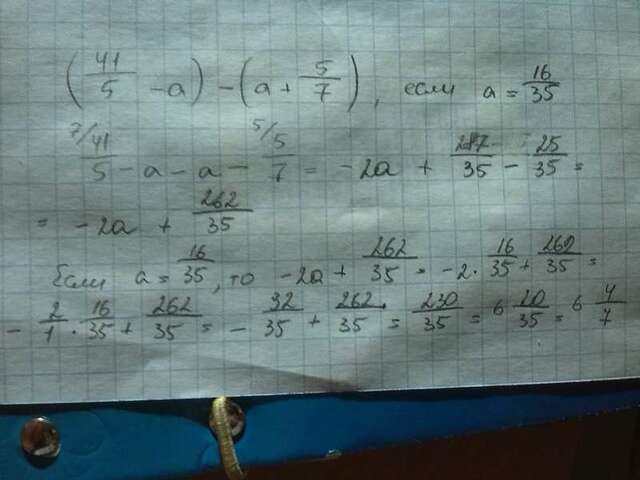 (41/5 - a) - (a + 5/7), если a = 16/35
7/ 41/5 - a - a - 5/ 5/7 = -2a + 287/35 - 25/35 =
= -2a + 262/35
Если a = 16/35, то -2a + 262/35 = -2 · 16/35 + 262/35 =
- 2/1 · 16/35 + 262/35 = - 32/35 + 262/35 = 230/35 = 6 20/35 = 6 4/7